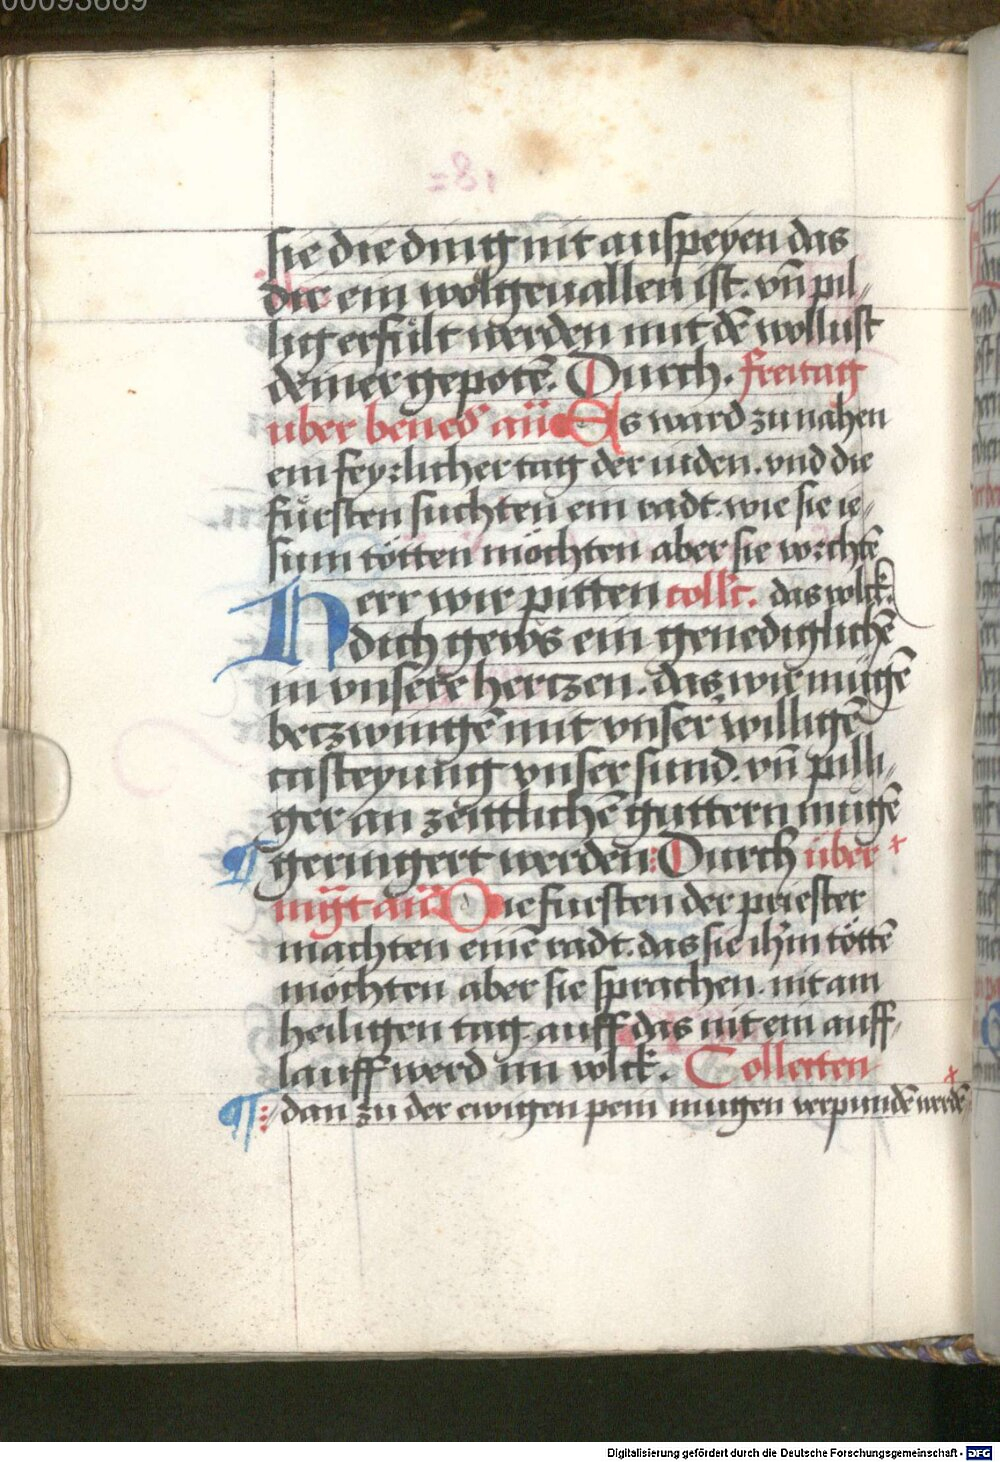 00093669
sie die ding nit auspeyen das
dir ein wolgeuallen ist. vñ pil„
lig erfült werden mit dē wollust
deiner gepotē. Durch. freitag
uber bened' añ Es ward zu nahen
ein feyrlicher tag der iuden. vnd die
fürsten suchten ein radt. wie sie ie„
sum tötten möchten aber sie vorchtē
Herr wir pitten collct. das volck.
dich gews ein genediglichē
in vnsere hertzen. das wir mügē
betzwingē mit vnser willigē
casteyung vnser sund. vñ pilli„
ger an zeittlichē guttern mugē
geringert werden Durch über +
mgt añ Die fursten der priester
machten einē radt. das sie ihm töttē
möchten aber sie sprachen. nit am
heiligen tag. auff das nit ein auff„
lauff werd im volck. Collecten
dan zu der ewigen pein mugen verpundē werdē +
Digitalisierung gefördert durch die Deutsche Forschungsgemeinschaft - DFG